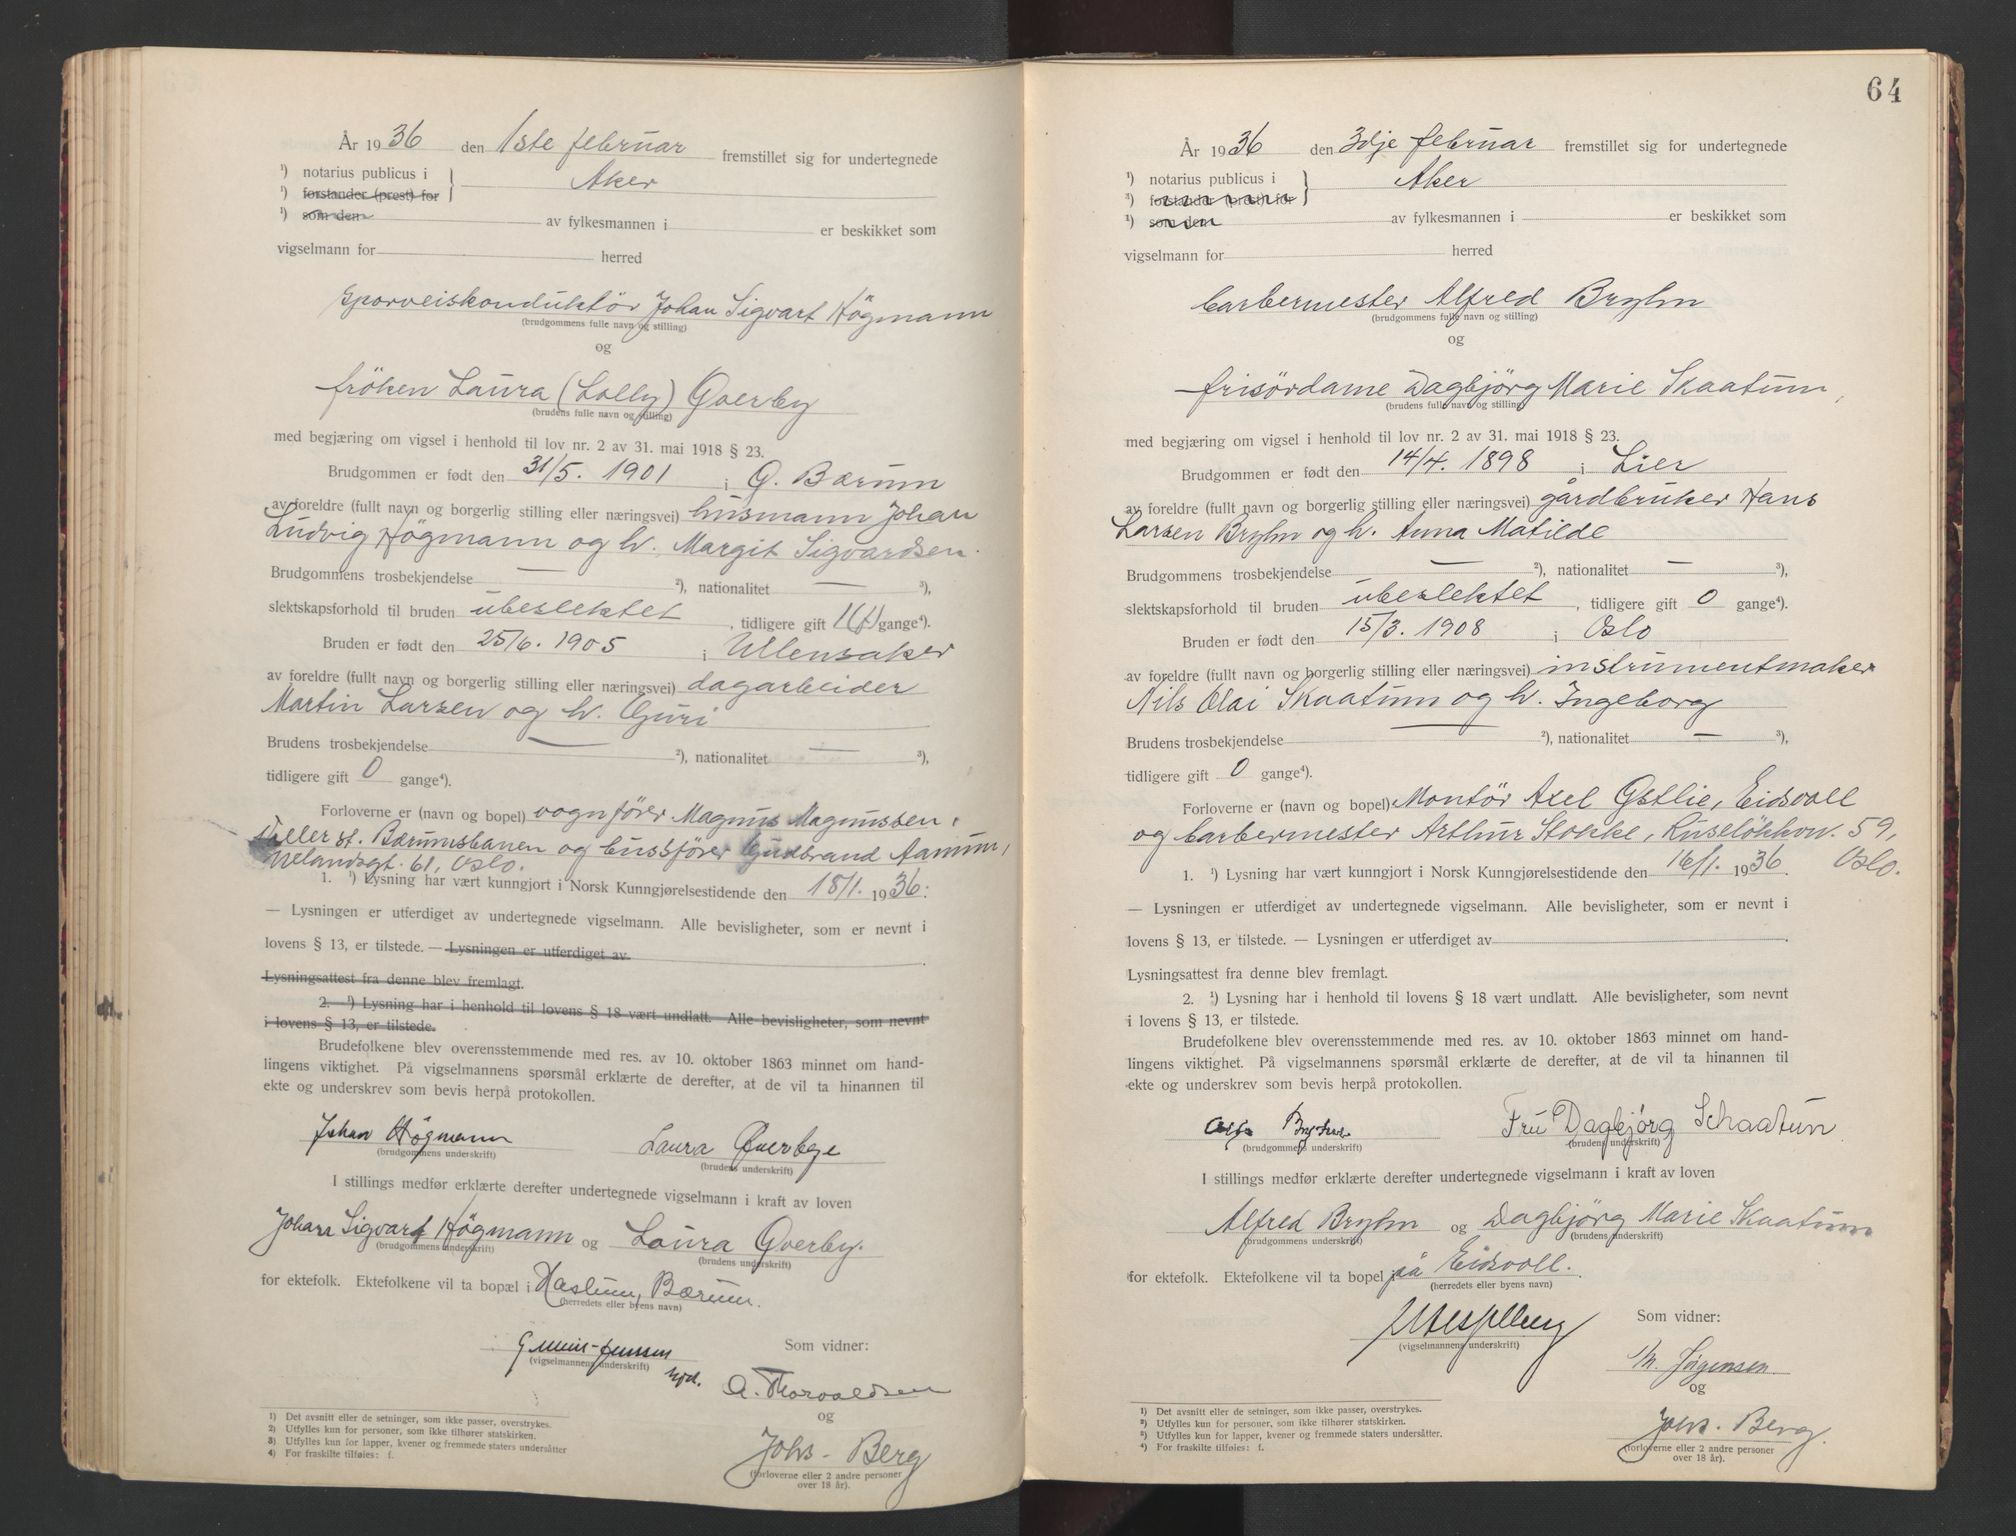 År 1936 den 1ste februar fremstillet sig for undertegnede
¹) notarius publicus i } Aker
¹) forstander (prest) for
¹) som den av fylkesmannen i er beskikket som
vigselmann for herred
Sporveiskonduktör Johan Sigvart Högmann
(brudgommens fulle navn og stilling)
og
fröken Laura (Lolly) Qverby
(brudens fulle navn og stilling)
med begjæring om vigsel i henhold til lov nr. 2 av 31. mai 1918 § 23.
Brudgommen er født den 31/5. 1901 i Ö. Bærum
av foreldre (fullt navn og borgerlig stilling eller næringsvei) husmann Johan
Ludvig Högmann og h. Margit Sigvardsen.
Brudgommens trosbekjendelse — ²), nationalitet — ³),
slektskapsforhold til bruden ubeslektet, tidligere gift 1(f) gange⁴).
Bruden er født den 25/6. 1905 i Ullensaker
av foreldre (fullt navn og borgerlig stilling eller næringsvei) dagarbeider
Martin Larsen og h. Guri
Brudens trosbekjendelse — ²), nationalitet — ³),
tidligere gift 0 gange⁴).
Forloverne er (navn og bopel) vognfører Magnus Magnussen,
st. Bærumsbanen og bussfører Gudbrand Aamum,
Uelandsgt. 61, Oslo.
1. ¹) Lysning har vært kunngjort i Norsk Kunngjørelsestidende den 18/1. 1936.
— Lysningen er utferdiget av undertegnede vigselmann. Alle bevisligheter, som er nevnt i
lovens § 13, er tilstede. — Lysningen er utferdiget av
Lysningsattest fra denne blev fremlagt.
2. ¹) Lysning har i henhold til lovens § 18 vært undlatt. Alle bevisligheter, som nevnt
i lovens § 13, er tilstede.
Brudefolkene blev overensstemmende med res. av 10. oktober 1863 minnet om hand-
lingens viktighet. På vigselmannens spørsmål erklærte de derefter, at de vil ta hinannen til
ekte og underskrev som bevis herpå protokollen.
Johan Högmann Laura Øverbye
(brudgommens underskrift) (brudens underskrift)
I stillings medfør erklærte derefter undertegnede vigselmann i kraft av loven
Johan Sigvart Högmann og Laura Qverby.
(brudgommens underskrift) (brudens underskrift)
for ektefolk. Ektefolkene vil ta bopæl i Haslum, Bærum.
(herredets eller byens navn)
Som vidner:
(vigselmannens underskrift)
A. Thorvaldsen
og
Johs. Berg
(forloverne eller 2 andre personer
over 18 år).
1) Det avsnitt eller de setninger, som ikke passer, overstrykes.
2) Utfylles kun for personer, som ikke tilhører statskirken.
3) Utfylles kun for lapper, kvener og fremmede staters undersåtter
4) For fraskilte tilføies: f.
64
År 1936 den 3dje februar fremstillet sig for undertegnede
¹) notarius publicus i } Aker
¹) forstander (prest) for
¹) som den av fylkesmannen i er beskikket som
vigselmann for herred
barbermester Alfred Bryhn
(brudgommens fulle navn og stilling)
og
frisördame Dagbjörg Marie Skaatum,
(brudens fulle navn og stilling)
med begjæring om vigsel i henhold til lov nr. 2 av 31. mai 1918 § 23.
Brudgommen er født den 14/4. 1898 i Lier
av foreldre (fullt navn og borgerlig stilling eller næringsvei) gårdbruker Hans
Larsen Bryhn og h. Anna Matilde
Brudgommens trosbekjendelse — ²), nationalitet — ³),
slektskapsforhold til bruden ubeslektet, tidligere gift 0 gange⁴).
Bruden er født den 15/3. 1908 i Oslo
av foreldre (fullt navn og borgerlig stilling eller næringsvei) instrumentmaker
Nils Olai Skaatum og h. Ingeborg
Brudens trosbekjendelse — ²), nationalitet — ³),
tidligere gift 0 gange⁴).
Forloverne er (navn og bopel) Montör Axel Østlie, Eidsvoll
og barbermester Arthur Stokke, Ruseløkkvn. 59,
Oslo.
1. ¹) Lysning har vært kunngjort i Norsk Kunngjørelsestidende den 16/1. 1936
— Lysningen er utferdiget av undertegnede vigselmann. Alle bevisligheter, som er nevnt i
lovens § 13, er tilstede. — Lysningen er utferdiget av
Lysningsattest fra denne blev fremlagt.
2. ¹) Lysning har i henhold til lovens § 18 vært undlatt. Alle bevisligheter, som nevnt
i lovens § 13, er tilstede.
Brudefolkene blev overensstemmende med res. av 10. oktober 1863 minnet om hand-
lingens viktighet. På vigselmannens spørsmål erklærte de derefter, at de vil ta hinannen til
ekte og underskrev som bevis herpå protokollen.
Fru Dagbjørg Schaatun
(brudgommens underskrift) (brudens underskrift)
I stillings medfør erklærte derefter undertegnede vigselmann i kraft av loven
Alfred Bryhn og Dagbjörg Marie Skaatum
(brudgommens underskrift) (brudens underskrift)
for ektefolk. Ektefolkene vil ta bopel på Eidsvoll.
(herredets eller byens navn)
Som vidner:
(vigselmannens underskrift)
M. Jørgensen
og
Johs. Berg.
(forloverne eller 2 andre personer
over 18 år).
1) Det avsnitt eller de setninger, som ikke passer, overstrykes.
2) Utfylles kun for personer, som ikke tilhører statskirken.
3) Utfylles kun for lapper, kvener og fremmede staters undersåtter.
4) For fraskilte tilføies: f.